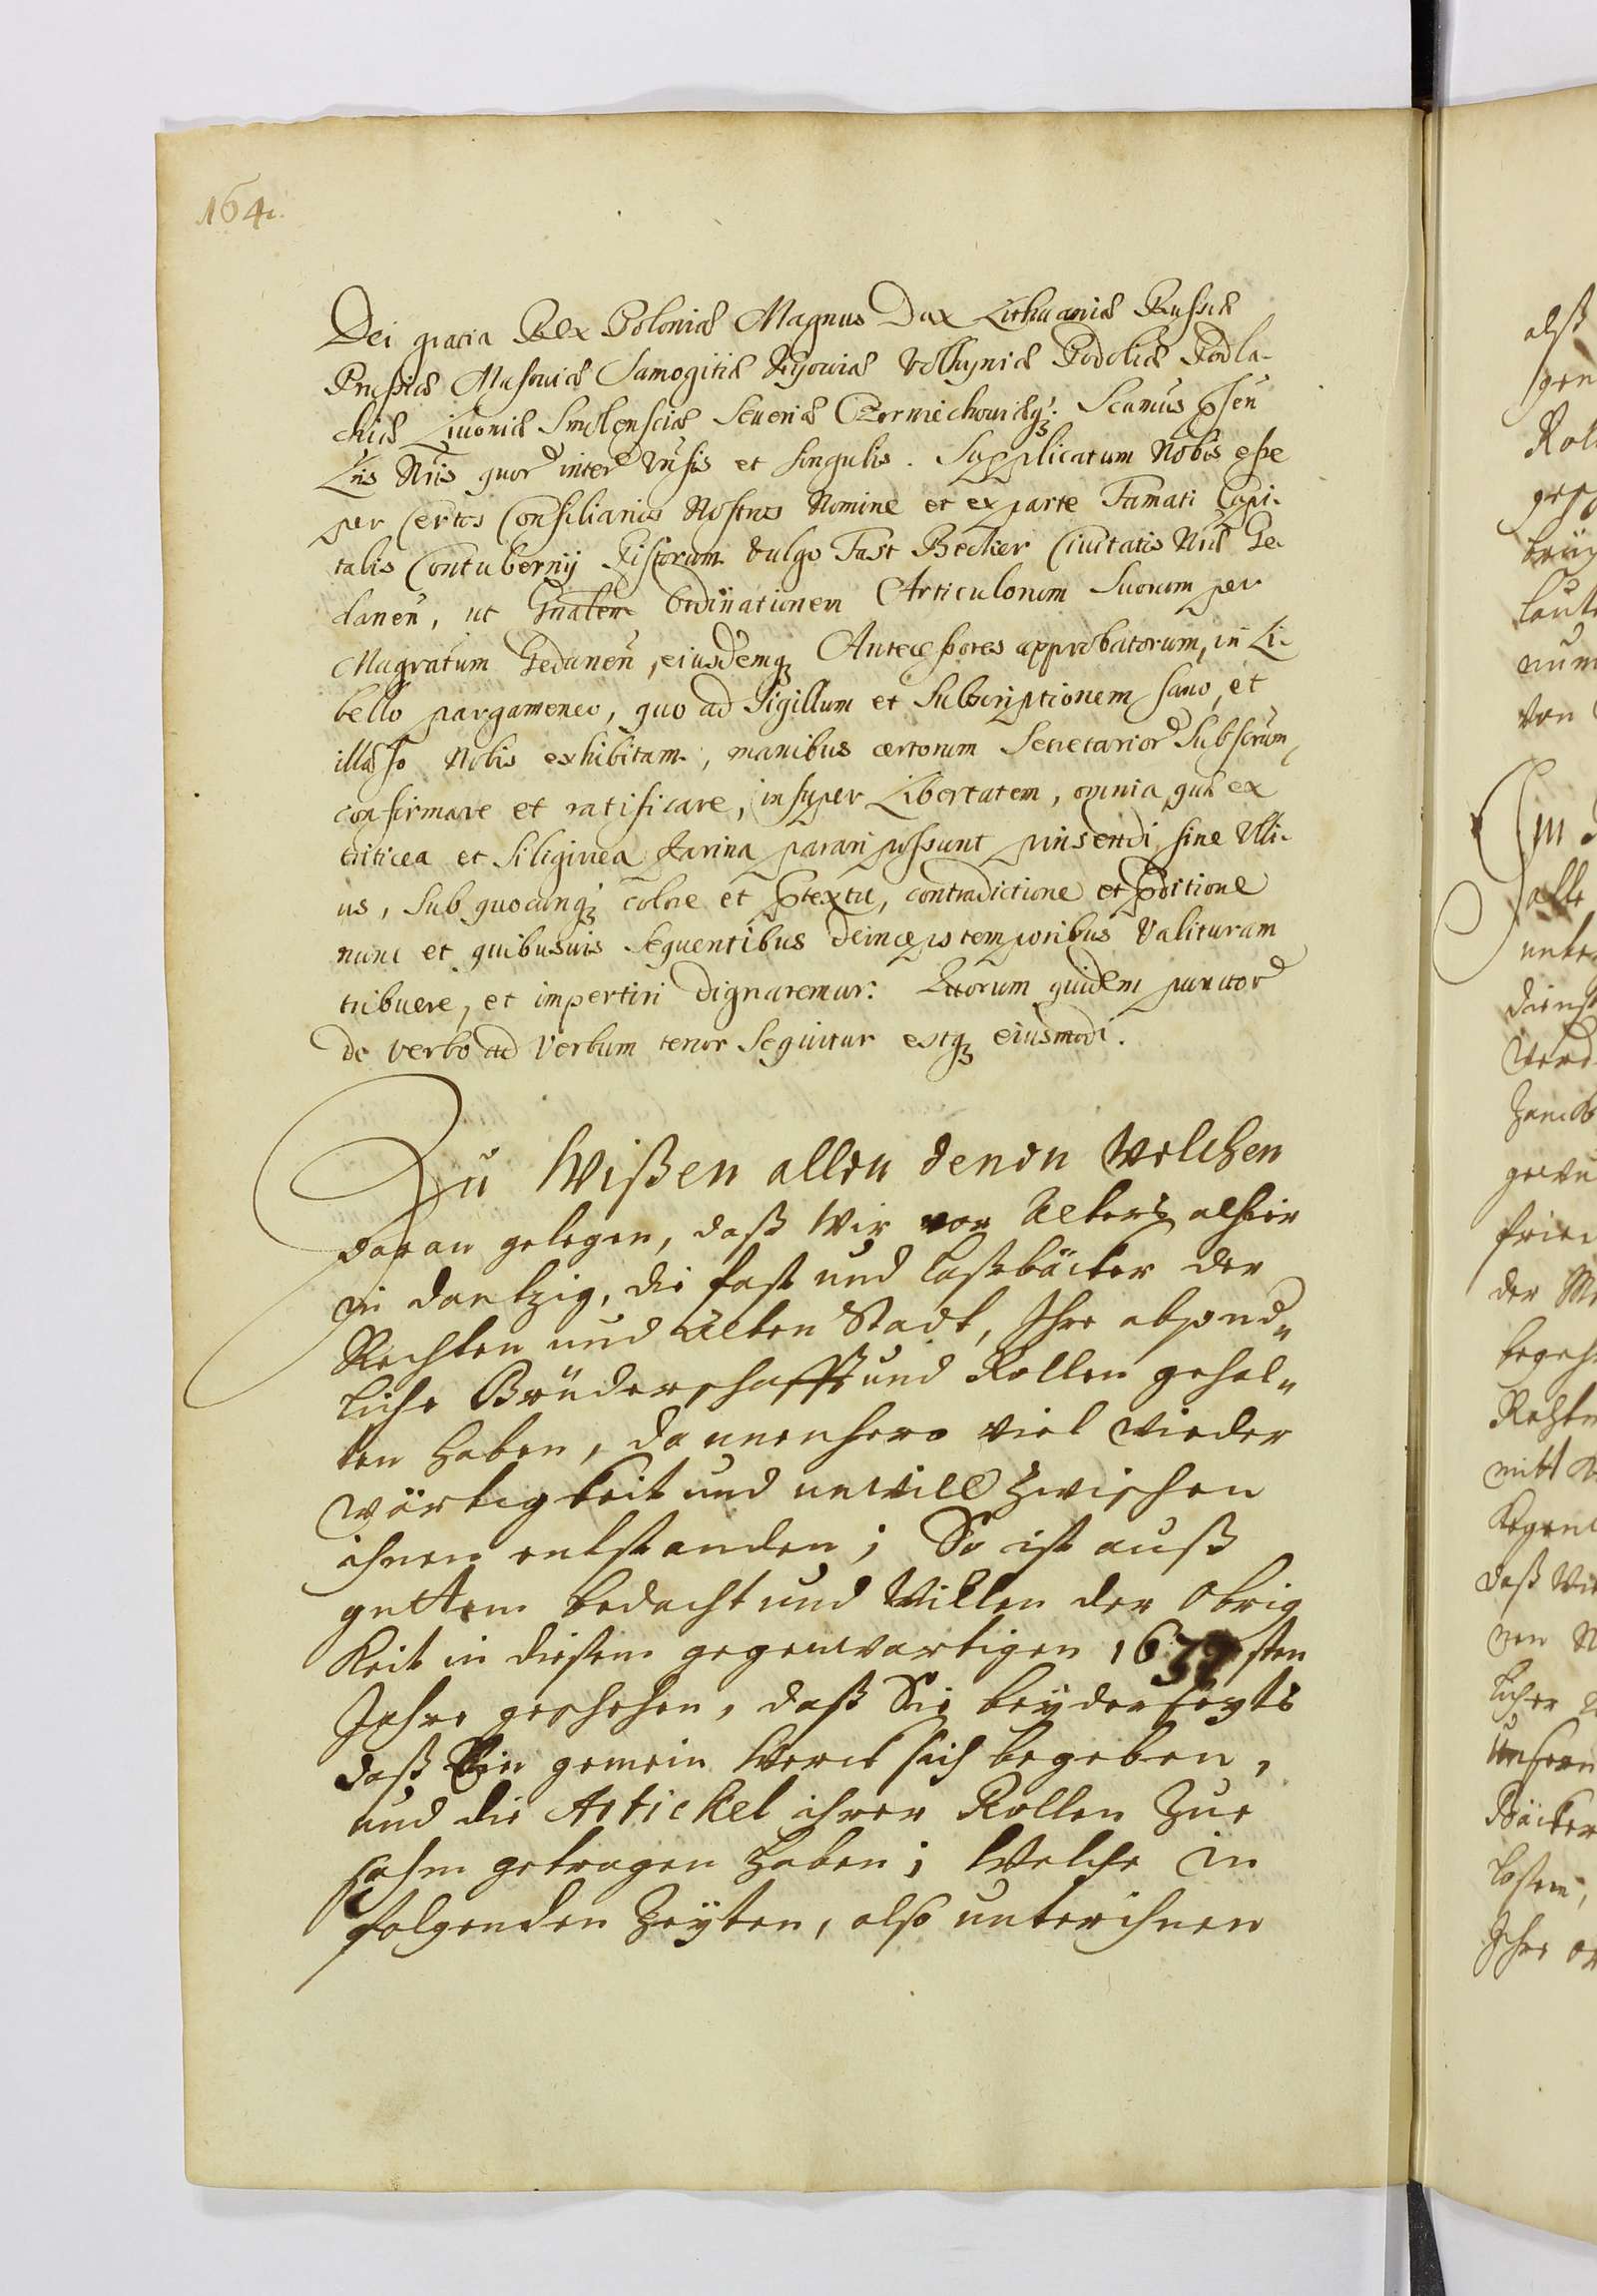 164.
Dei gratia Rex Poloniæ Magnus Dux Lithuaniæ Russiæ
Prussiæ Masoviæ Samogitiæ Kijoviæ Volhyniæ Podoliæ Podla-
chiæ Livoniæ Smolensciæ Severiæ Czerniechoviæq;. Scamus
Lris Nris quor inter Vnsis et singulis. Supplicatum Nobis esse
per Certos Consiliarios Nostros Nomine et ex parte Famati Capi-
talis Contubernij Pistorum vulgo Fast Becker Civitatis Nræ Ge-
danen, ut Gnalem Ordinationem Articulorum Suorum per
Magratum Gedanen, eiusdemq; Antecessores approbatorum, in Li-
bello pargameneo, quo ad Sigillum et Subscriptionem sano, et
illæso Nobis exhibitam, manibus certorum Secretarior Subscrum,
confirmare et ratificare, insuper Libertatem, omnia quæ ex
triticea et Siliginea Farina parari possunt pinsendi, sine Vlli-
us, Sub quocunq; colore et ptextu, contradictione et pditione
nunc et quibusvis Sequentibus deinceps temporibus Valituram
tribuere, et impertiri dignaremur: Quorum quidem punctor
de verbo ad Verbum tenor Sequitur estq; eiusmodi.
Zu Wißen allen denen Welchen
daran gelegen, daß Wir von Alters alhier
in dantzig, die fast und Laßbäcker der
Rechten und Alten Stadt, Ihre absond„
liche Brüderschafft und Rollen gehal„
ten haben, dannenhero viel wieder
wärtigkeit und unwill zwischen
ihnen entstanden; So ist auß
guttem bedacht und Willen der Obrig
keit in diesem gegenwartigen sten
Jahre geschehen, daß Sie beyderseyts
daß Ein gemein Werck sich begeben,
und die Artickel ihrer Rollen zue
sahm getragen haben; Welche in
folgenden Zeyten, also unter ihnen